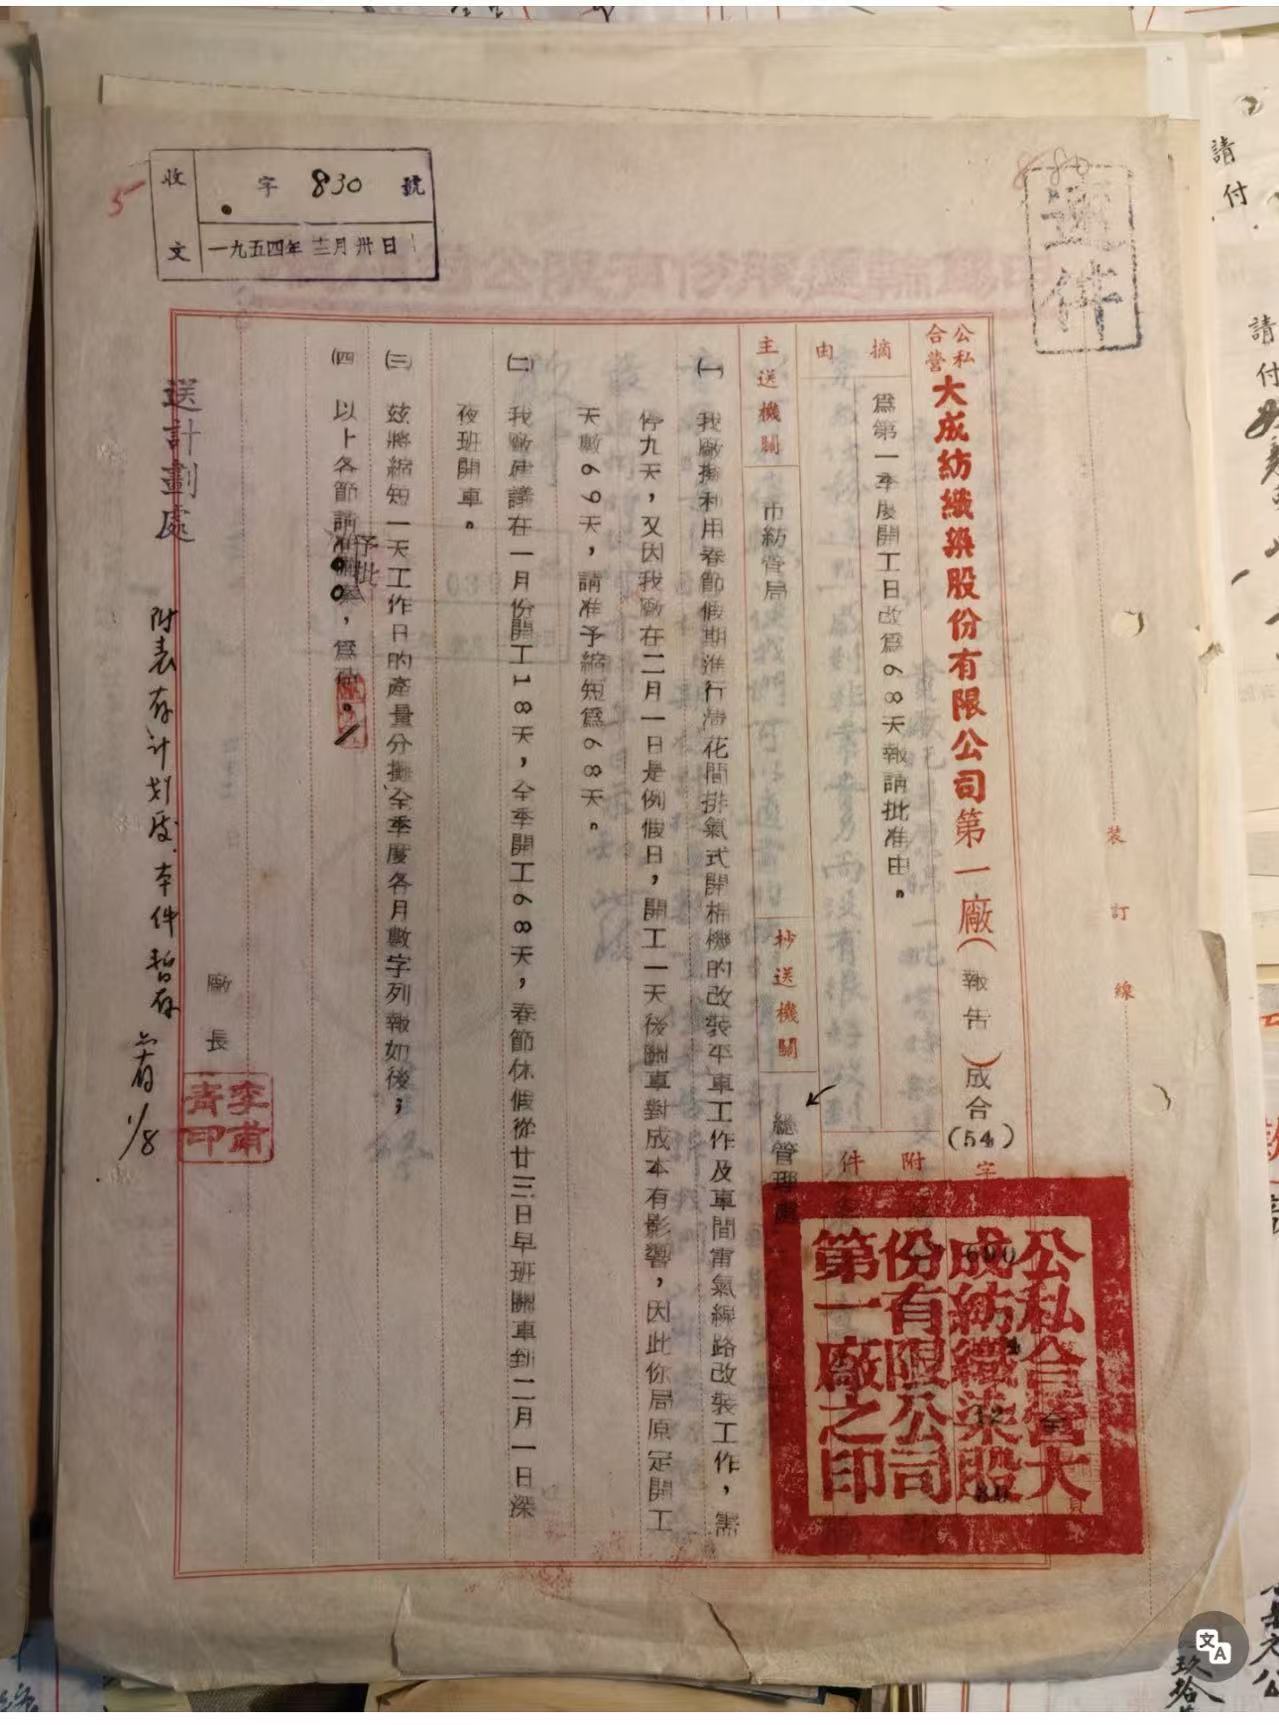 收文
字830號
一九五四年十二月卅日
速件
公私合營
大成紡織染股份有限公司第一廠(報告)成合(54)字
摘由
為第一季度開工日改為68天報請批准由。
附件
主送機關
市紡管局
抄送機關
總管理處
(一)我廠擬利用春節假期進行清花間排氣式開棉機的改裝平車工作及車間電氣線路改裝工作，需
停九天，又因我廠在二月一日是例假日，開工一天後關車對成本有影響，因此你局原定開工
天數69天，請准予縮短為68天。
(二)我廠建議在一月份開工18天，全季開工68天，春節休假從廿三日早班關車到二月一日深
夜班開車。
(三)茲將縮短一天工作日的產量分攤全季度各月數字列報如後；
(四)以上各節請予批，為
廠長
李甫青印
送計劃處
附表存計划處.本件暫存
1/8
公私合營大成紡織染股份有限公司第一廠之印
裝訂線
請付
請付